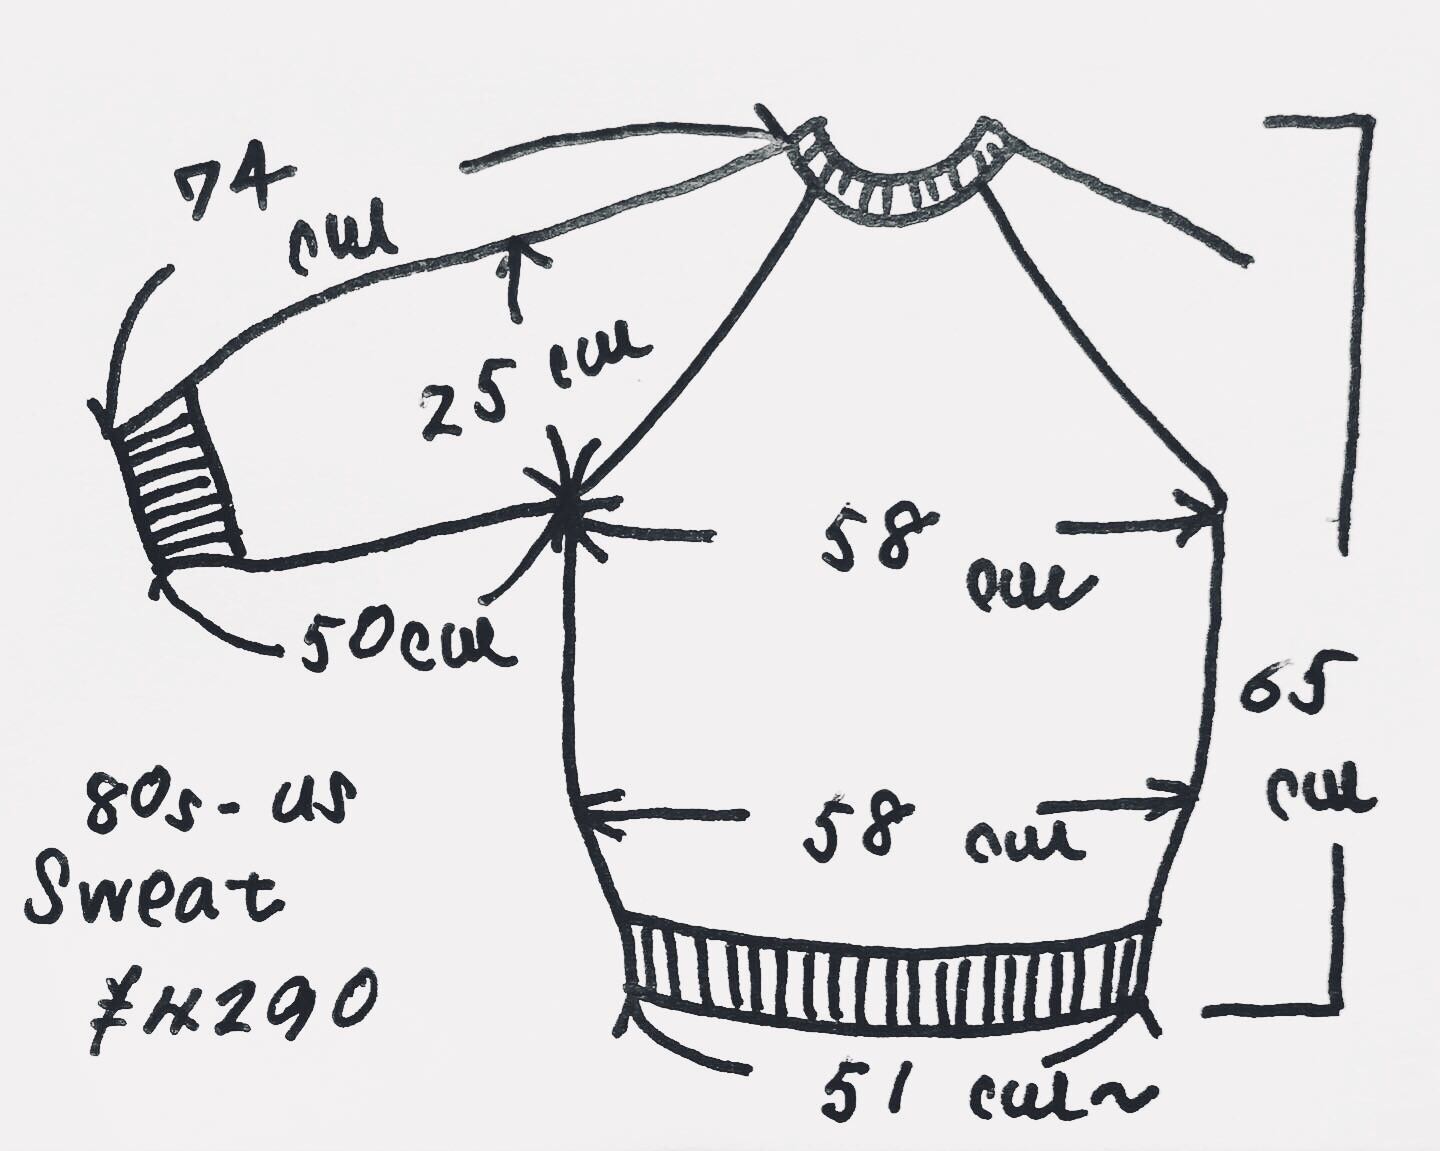 74
cm
25 cm
50cm
58
cm
65
cm
58 cm
51 cm~
80s-us
Sweat
¥4290